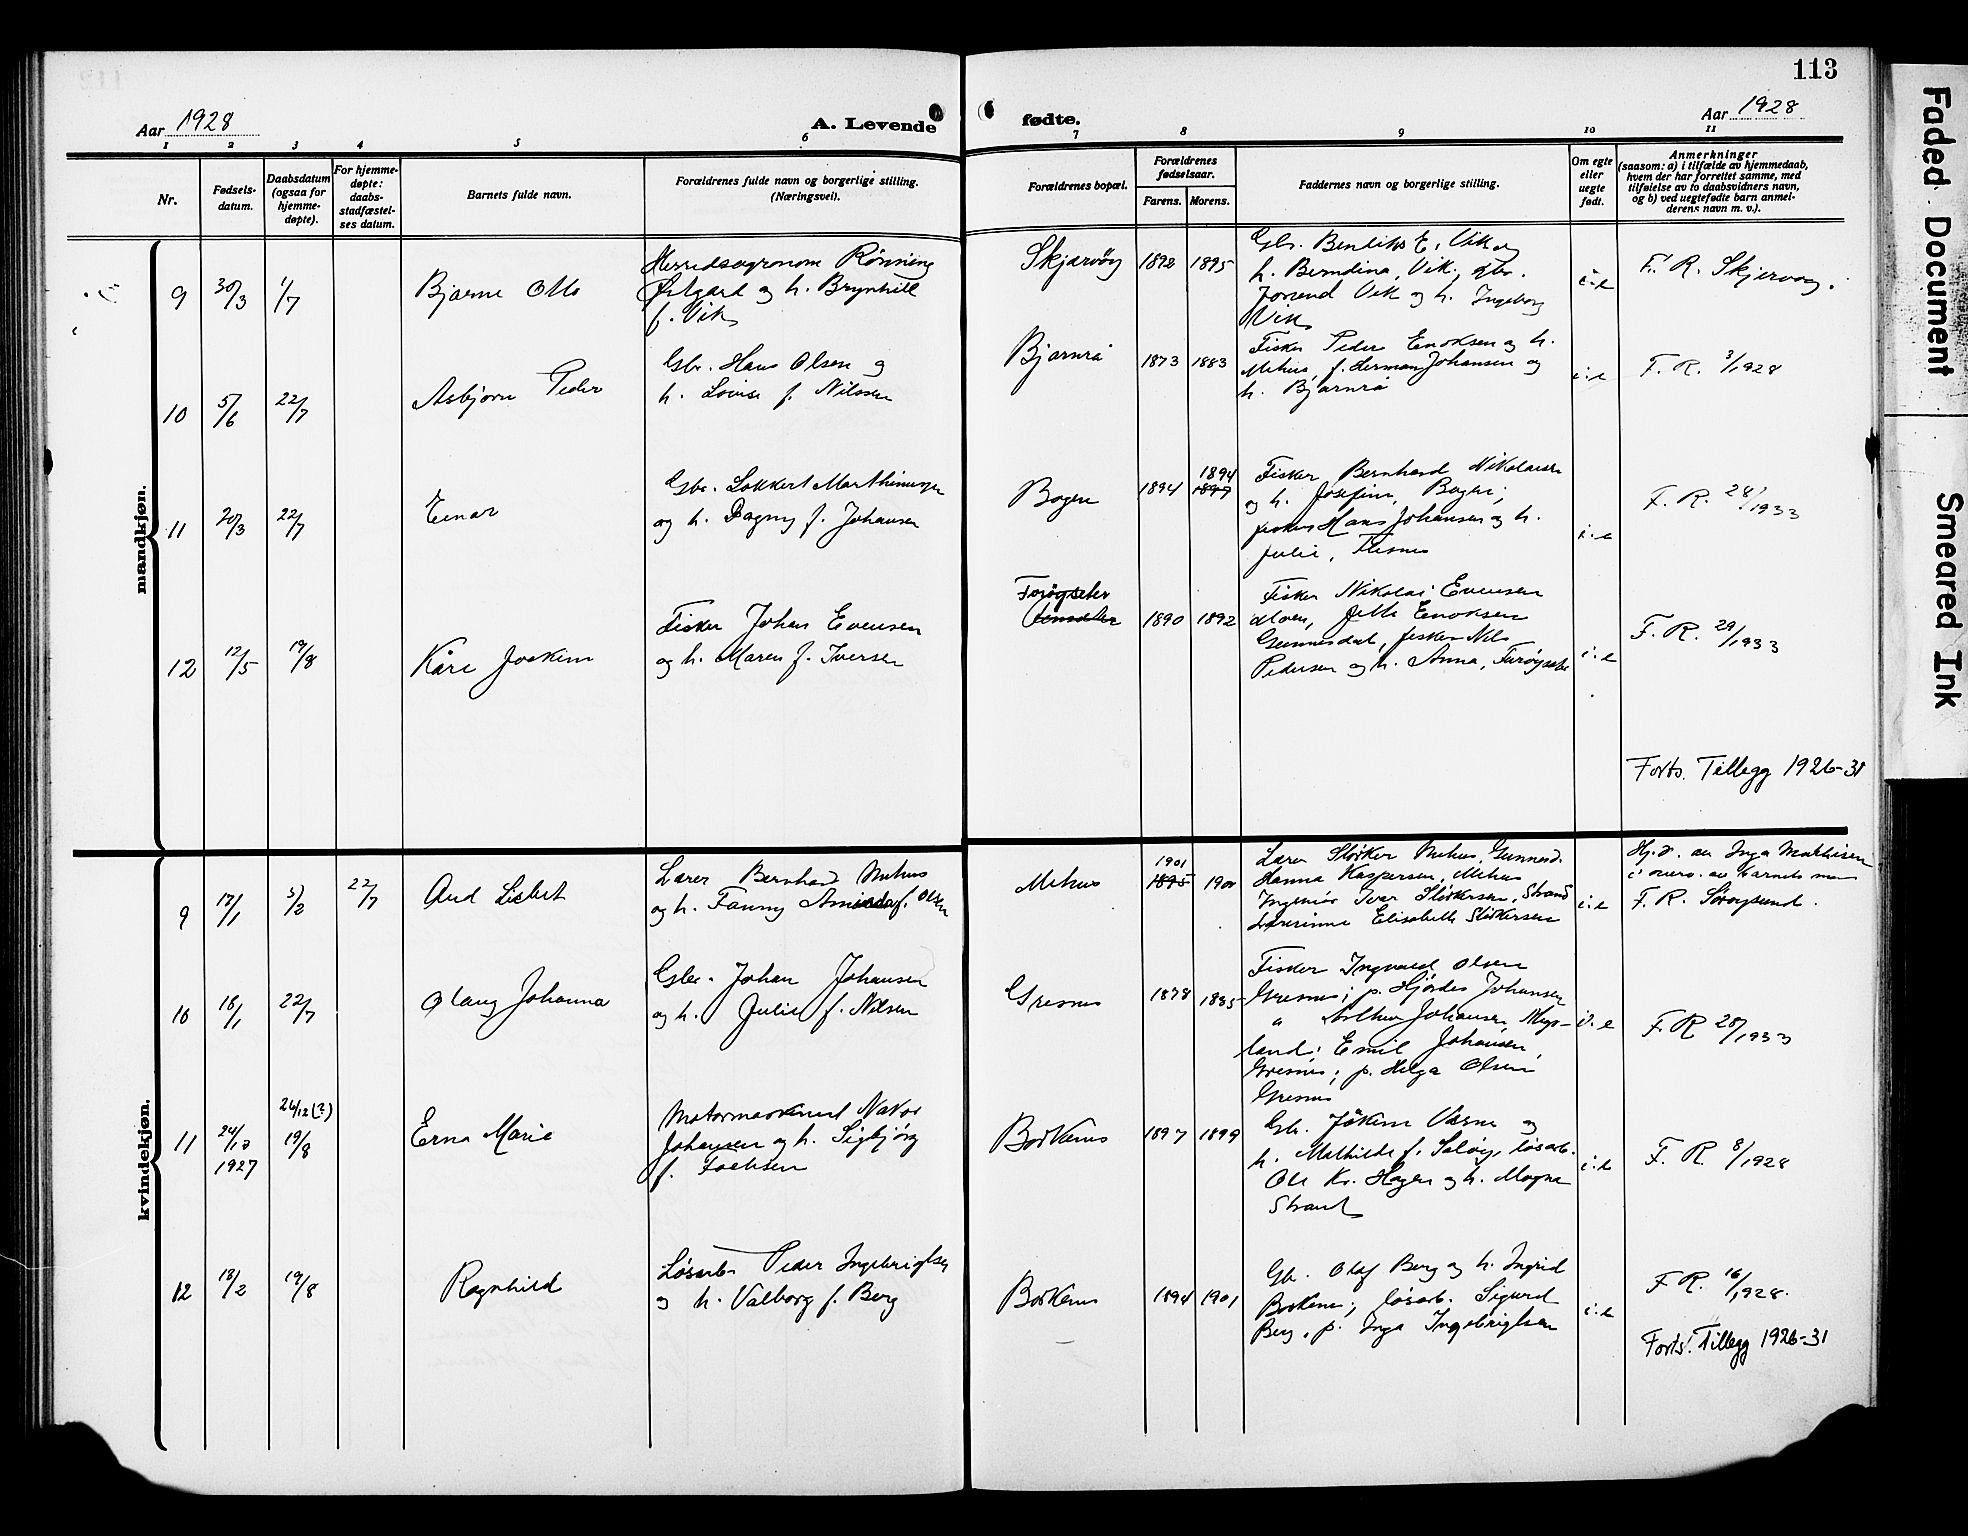 113
Aar 1928
A. Levende fødte.
Aar 1928
1 2 3 4 5 6 7 8 9 10 11
Nr.
Fødsels-
datum.
Daabsdatum
(ogsaa for
hjemme-
døpte).
For hjemme-
døpte:
daabs-
stadfæstel-
ses datum.
Barnets fulde navn.
Forældrenes fulde navn og borgerlige stilling.
(Næringsvei).
Forældrenes bopæl.
Forældrenes
fødselsaar.
Farens. Morens.
Faddernes navn og borgerlige stilling.
Om egte
eller
uegte
født.
Anmerkninger
(saasom: a) i tilfælde av hjemmedaab,
hvem der har forrettet samme, med
tilføielse av to daabsvidners navn,
og b) ved uegtefødte barn anmel-
derens navn m. v.).
mandkjøn.
9 30/3 1/7
Bjarne Otto
Herredsagronom Rönning
Østgard og h. Brynhild
f. Vik
Skjærvöy
1892 1895
Gbr. Berdiks E. Vik og
h. Berndina, Vik, gbr.
Jorend Vik og h. Ingeborg
Vik
i.e
F. R. Skjervøy.
10 5/6 22/7
Asbjørn Peder
Gbr. Hans Olsen og
h. Lovise f. Nilssen
Bjarnrå
1873 1883
Fisker Peder Enoksen og h.
Mehus, f. Herman Johansen og
h. Bjarnrå
i.e
F. R. 3/1928
11 20/3 22/7
Einar
Gbr. Lokkert Marthinusen
og h. Dagny f. Johansen
Bogen
1894 1894
1897
Fisker Bernhard Nikolaisen
og h. Josefine, Bogen;
fisker Hans Johansen og h.
Julie, Flesnes
i.e
F. R. 28/1933
12 12/5 19/8
Kåre Joakim
Fisker Johan Evensen
og h. Maren f. Iversen
Forøyseter
1890 1892
Fisker Nikolai Evensen
Moen, Jette Enoksen
Gunnesdal, fisker Nils
Pedersen og h. Anna, Forøyseter
i.e
F. R. 29/1933
Forts. Tillegg 1926-31
kvindekjøn.
9 17/1 5/2 22/7
Aud Lisbet
Lærer Bernhard Mehus
og h. Fanny Aminda f. Olsen
Mehus
1901
1895 1901
Lærer Störker Mehus, Gunnesd.
Hanna Kaspersen, Mehus
Ingeniör Iver Störkersen, Strand
Lærerinne Elisabeth Störkersen
i.e
Hj.d. av Inga Mathisen
i overv. av barnets mor
F. R. Sörøysund.
10 18/1 22/7
Olaug Johanna
Gbr. Johan Johansen
og h. Julie f. Nilsen
Gresnes
1878 1885
Fisker Ingvald Olsen
Gresnes; p. Hjördes Johansen
" Arthur Johansen, Myr-
land; Emil Johansen,
Gresnes; p. Helga Olsen
Gresnes
i.e
F. R. 28/1933
11 24/12
1927
26/12 (?)
19/8
Erna Marie
Motormaskinist Nakor
Johansen og h. Sigbjörg
f. Joelsen
Borkenes
1897 1899
Gbr. Jökim Værne og
h. Mathilde f. Salöy, lösarb.
Ole Kr. Hagen og h. Magna
Strand
i.e
F. R. 8/1928
12 18/2 19/8
Ragnhild
Lösarb. Peder Ingebrigtsen
og h. Valborg f. Berg
Borkenes
1894 1901
Gbr. Olaf Berg og h. Ingrid
Borkenes; lösarb. Sigurd
Berg, p. Inga Ingebrigtsen
i.e
F. R. 16/1928.
Forts. Tillegg 1926-31
Faded Document
Smeared Ink